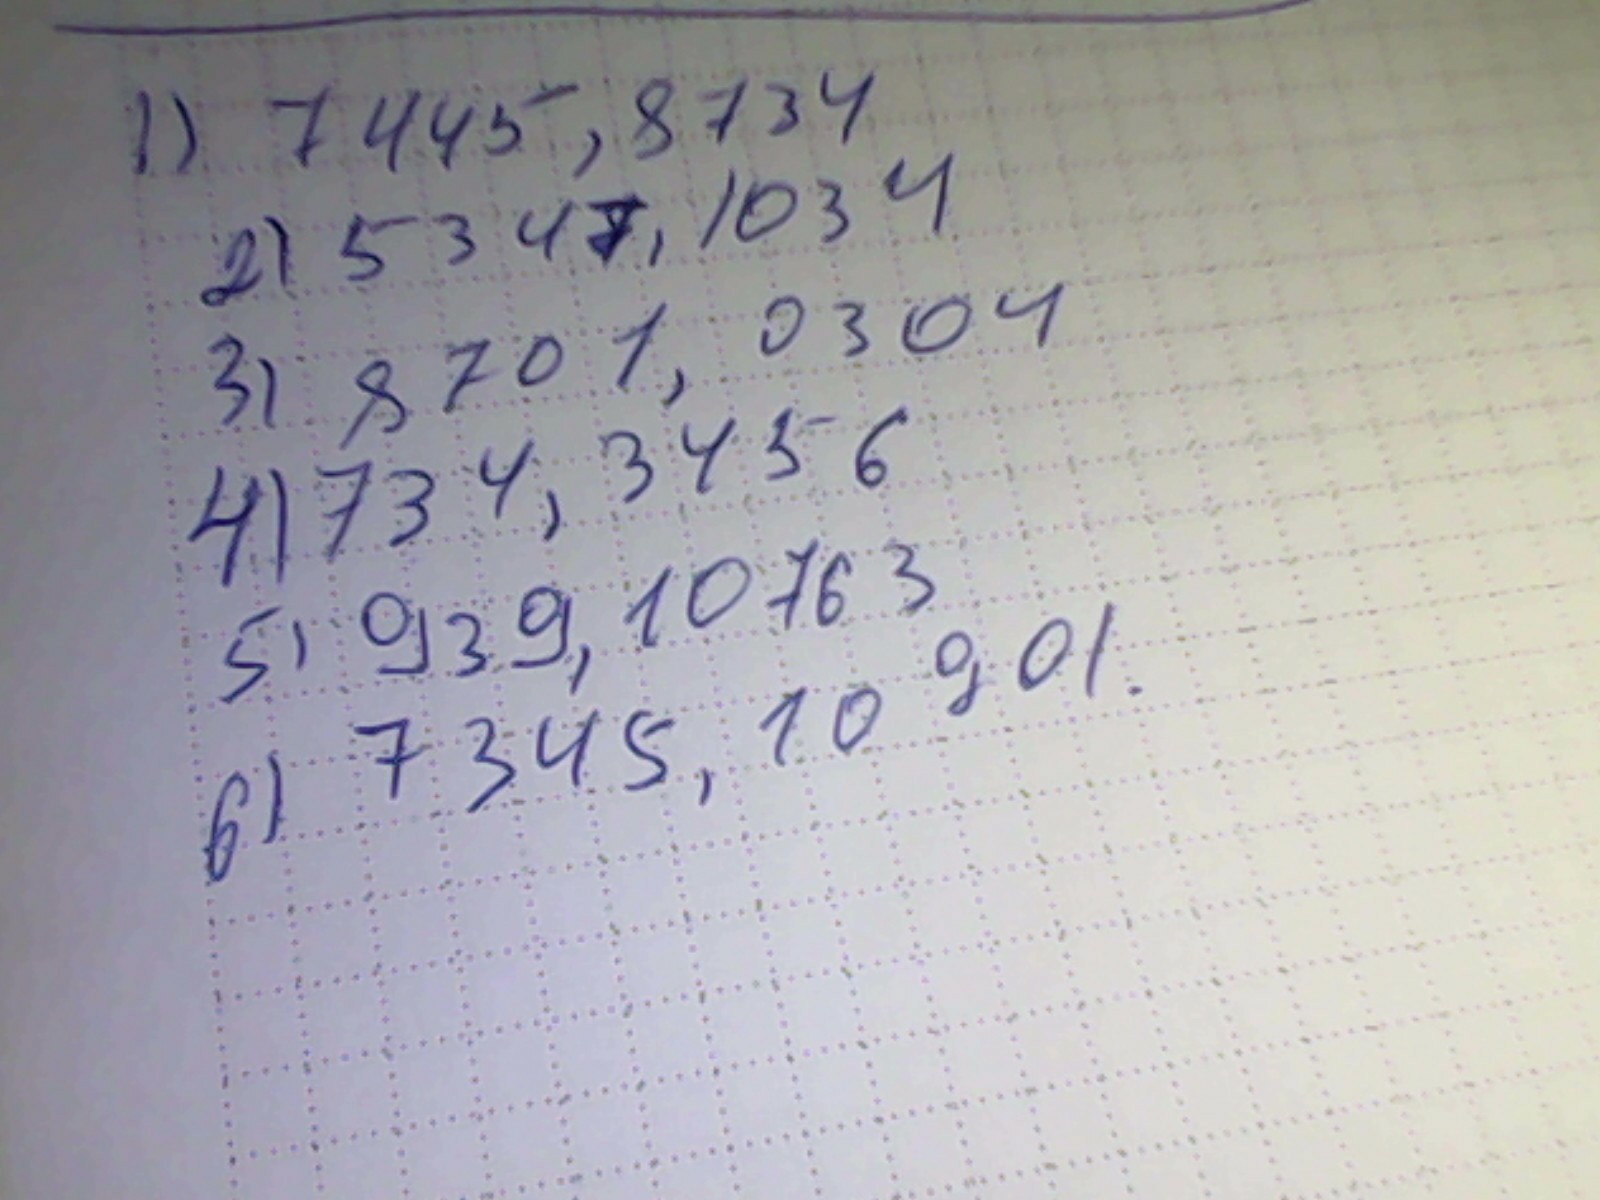 1) 7445,8734
2) 5347,1034
3) 8701,0304
4) 734,3456
5) 939,10763
6) 7345,10901.